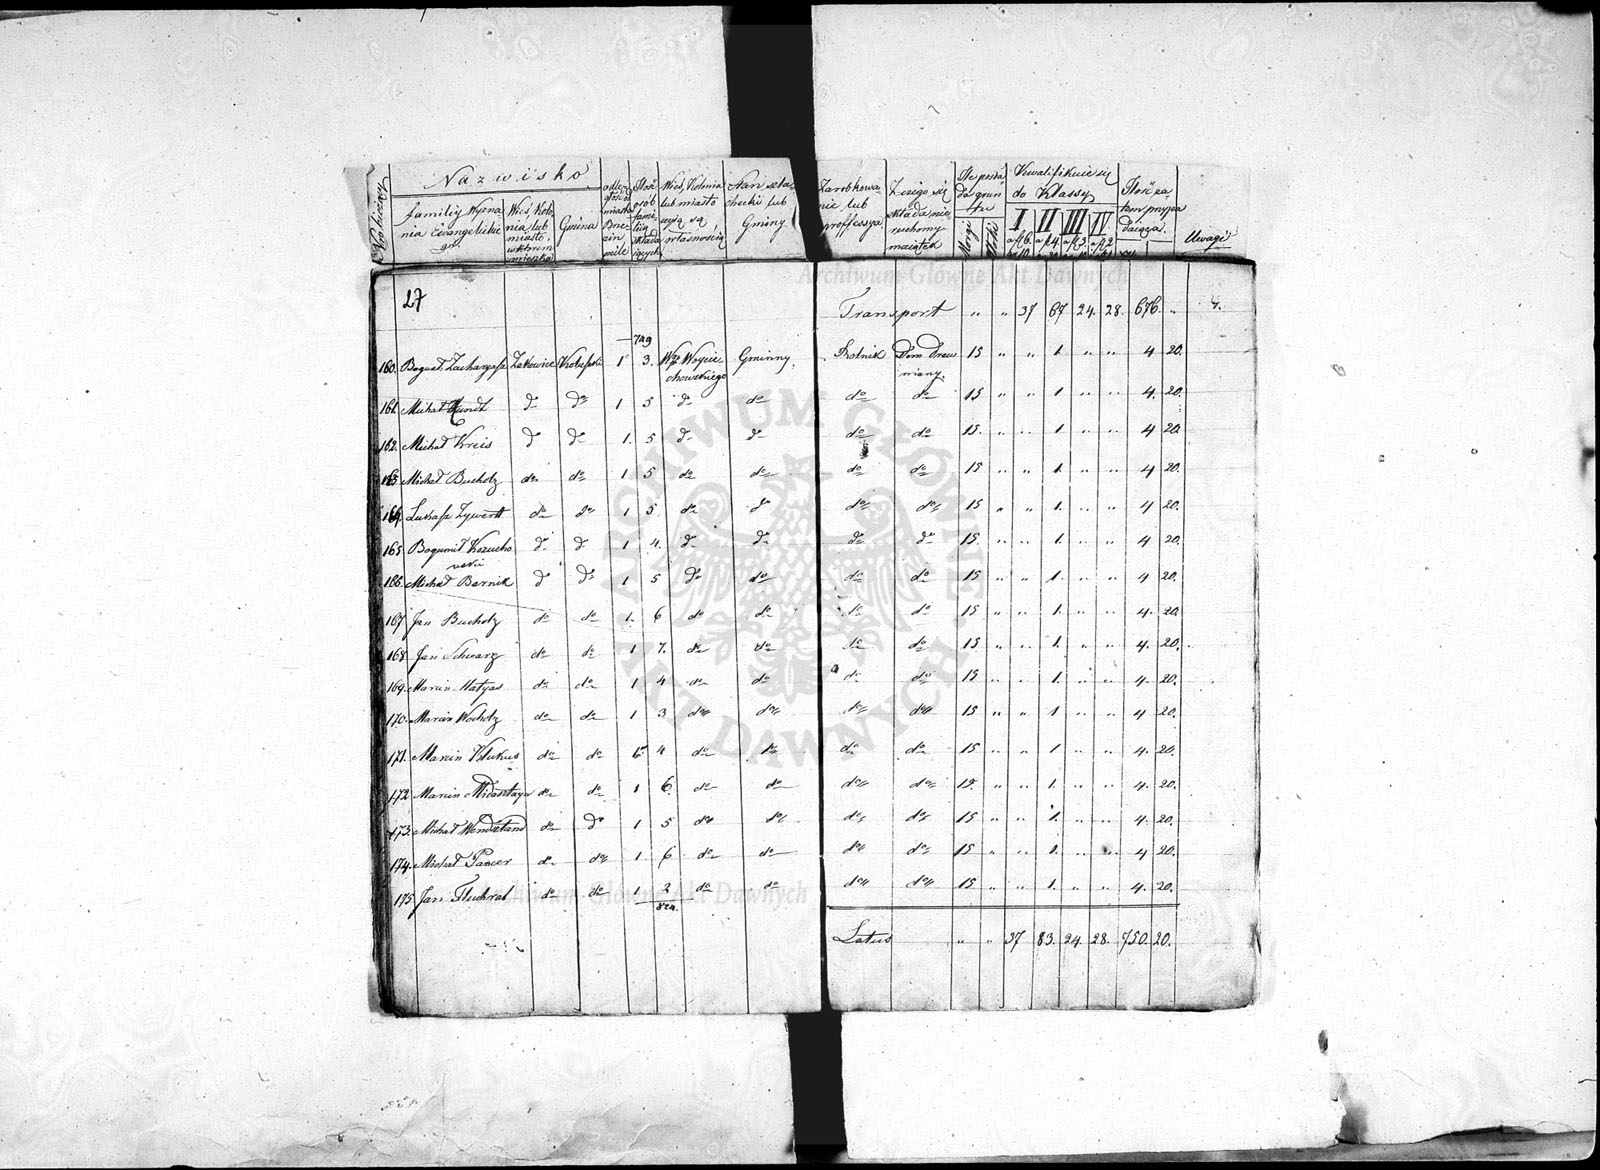 Nazwisko
familiy Wyzna
nia Ewangelickie
go
Wieś, Kolo
nia, lub
miasto,
w którem
mieszka
Gmina
odle
głość od
miasta
Brze
zin
mile
Ilość
osób
fami
lią
składa
iących
Wieś, Kolonia
lub miasto
czyją są
własnością
Stan szla
checki lub
Gminny
Zarobkowa
nie lub
proffessya
Z czego się
składa nie
ruchomy
maiątek
Ile posia
da grun
tu
Morgi
Kwalifikuie się
do Klassy
I II III IV
Ilość za
tem przypa
daiąca
Uwagi
Archiwum Główne Akt Dawnych
27
Transport " " 37 67 24. 28. 676. "
749
160. Zakowice 1 3. Gminny. Rolnik Dom Drew 15 " " 1. " " 4 20.
niany.
161. Michał do do 1 5 do do do do 15 " " 1 " " 4. 20.
162. Michał Kreis do do 1. 5 do do do do 15. " " 1. " " 4 20.
163 Michał Bucholz do do 1 5 do do do do 15 " " 1. " " 4 20.
164. Łukasz Zywert do do 1 5. do do do do 15 " " 1. " " 4 20.
165 Bogumił Kozucho do do 1 4. do do do do 15. " " 1. " " 4 20.
wski
166. Michał Bernik do do 1 5 do do do do 15 " " 1. " " 4 20.
167 Jan Bucholz do do 1. 6 do do do do 15 " " 1. " " 4. 20.
168. Jan Schwarz do do 1 7. do do do do 15 " " 1. " " 4. 20.
169. Marcin Matyas do do 1 4 do do do do 15 " " 1. " " 4. 20.
170. Marcin Wocholz do do 1 3 do do do do 15 " " 1 " " 4 20.
171. Marcin do do 1 4 do do do do 15 " " 1 " " 4. 20.
172 Marcin do do 1 6. do do do do 15. " " 1. " " 4. 20.
173. Michał Wendland do do 1 5 do do do do 15 " " 1. " " 4. 20.
174. Michał Pancer do do 1. 6 do do do do 15 " " 1. " " 4 20.
175. Jan do do 1 2 do do do do 15 " " 1. " " 4. 20.
824.
Latus " " 37 83. 24. 28. 750. 20.
ARCHIWUM GŁÓWNE AKT DAWNYCH
Archiwum Główne Akt Dawnych